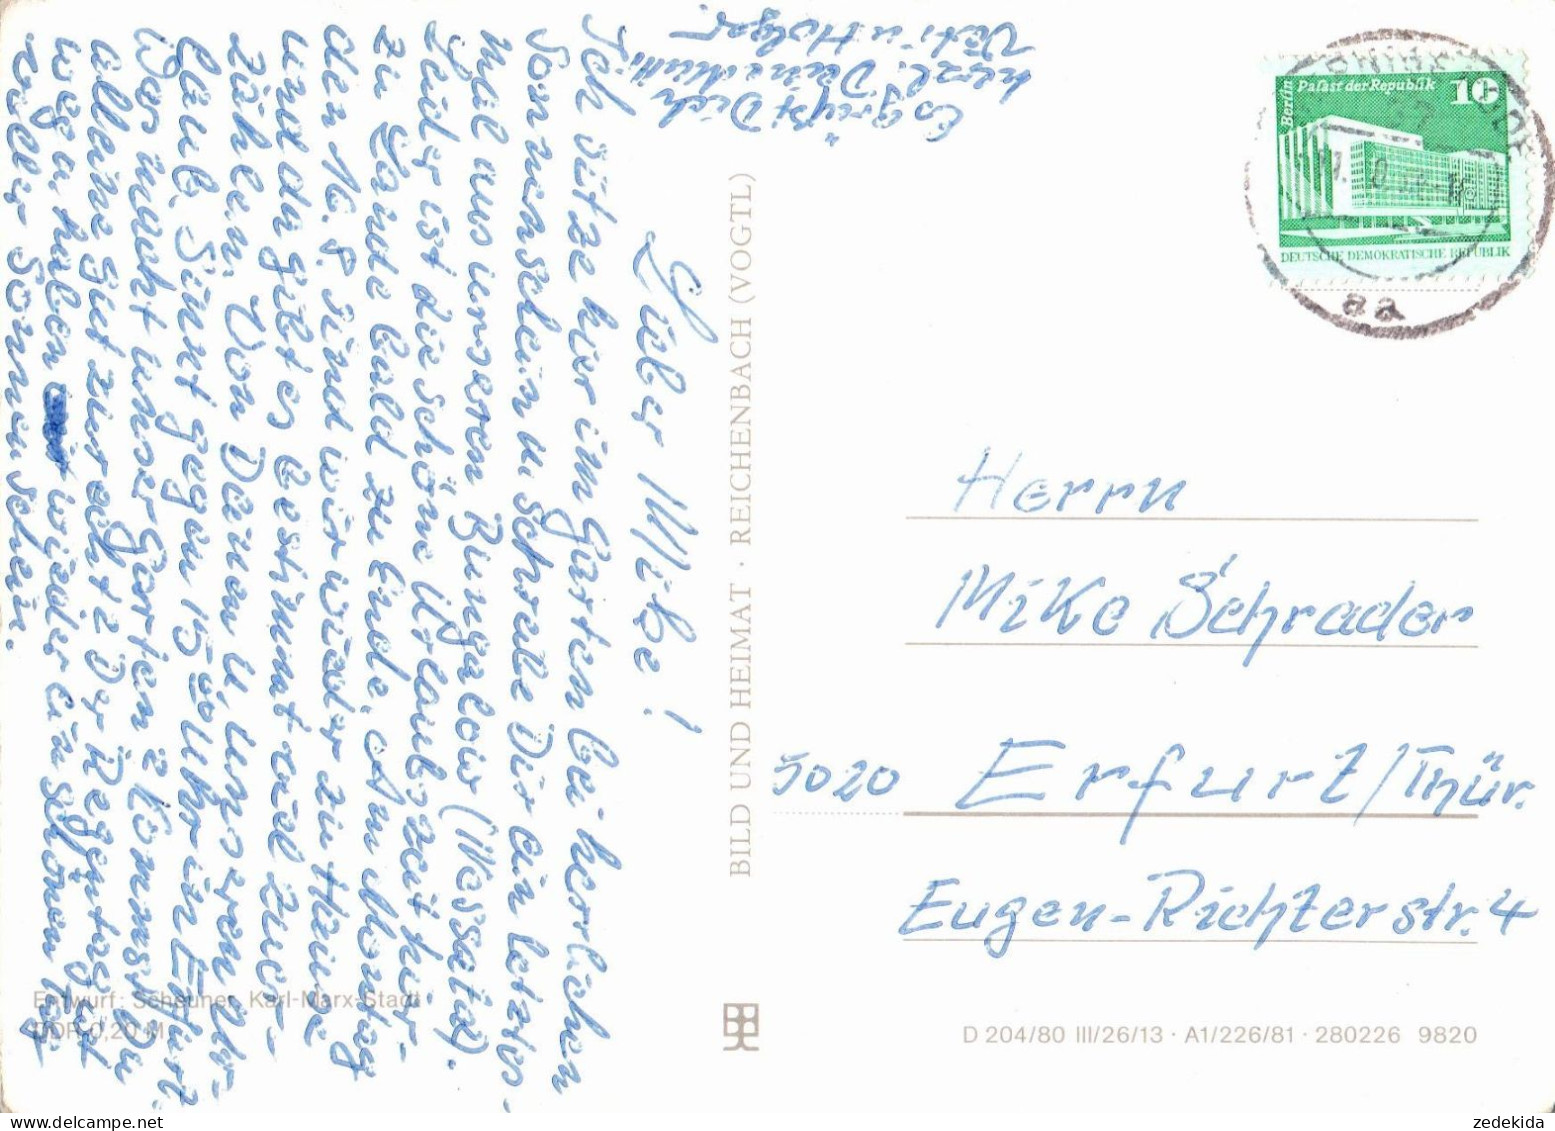 Lieber Mike!
Ich sitze hier im Garten bei herrlichen
Sonnenschein u. schreibe Dir ein letztes
Mal aus unseren Bungalow (Kesselal).
Leider ist die schöne Urlaubszeit hier
zu Lande bald zu Ende. Am Montag
den 16.8. sind wir wieder zu Hause
und da gibt es bestimmt viel zu er-
zählen. Von Deinen u. unseren Ur-
laub. Sind gegen 15⁰⁰ Uhr in Erfurt.
Was macht unser Garten? Kommst Du
alleine gut zurecht? Der Regentag ist
weg u. haben wieder ein schönen Tag
voller Sonnenschein.
Es grüßt Dich
herzl. Deine Mutti
Vati u. Holger.
BILD UND HEIMAT · REICHENBACH (VOGTL)
Berlin Palast der Republik 10
DEUTSCHE DEMOKRATISCHE REPUBLIK
aa
Herrn
Mike Schrader
5020 Erfurt/Thür.
Eugen-Richterstr. 4
Entwurf: Scheuner, Karl-Marx-Stadt
DDR 0,20 M
D 204/80 III/26/13 · A1/226/81 · 280226 9820
zedekida